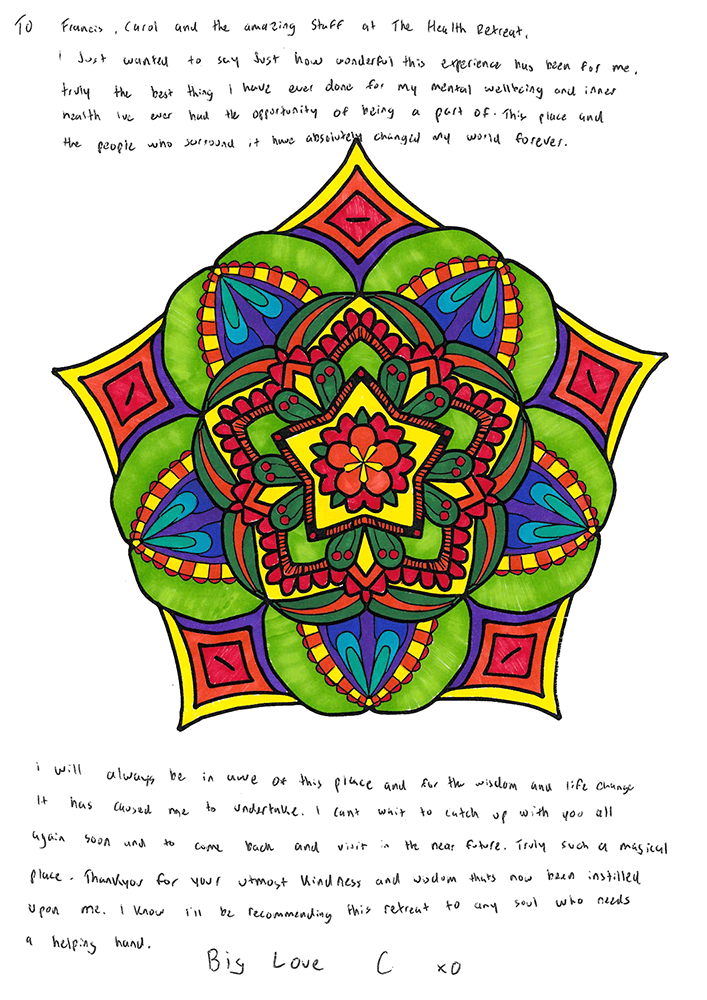 To Francis, Carol and the amazing Staff at The Health Retreat,
i Just wanted to say Just how wonderful this experience has been for me.
truly the best thing i have ever done for my mental wellbeing and inner
health Ive ever had the opportunity of being a part of. This place and
the people who surround it have absolutely changed my world forever.
i will always be in awe of this place and for the wisdom and life change
It has caused me to undertake. I cant wait to catch up with you all
again soon and to come back and visit in the near future. Truly such a magical
place. Thankyou for your utmost kindness and wisdom thats now been instilled
upon me. I know i'll be recommending this retreat to any soul who needs
a helping hand.
Big Love C xo